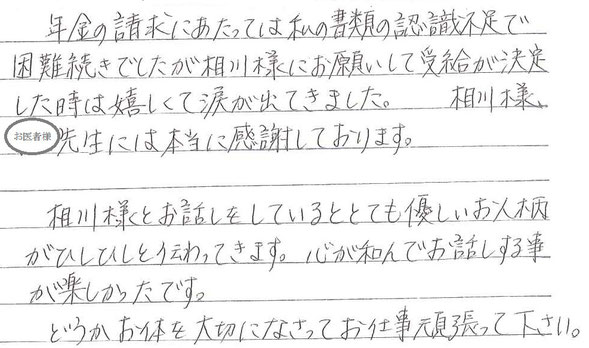 年金の請求にあたっては私の書類の認識不足で
困難続きでしたが相川様にお願いして受給が決定
した時は嬉しくて涙が出てきました。　相川様、
お医者様 先生には本当に感謝しております。
相川様とお話しをしているととても優しいお人柄
がひしひしと伝わってきます。心が和んでお話しする事
が楽しかったです。
どうかお体を大切になさってお仕事頑張って下さい。